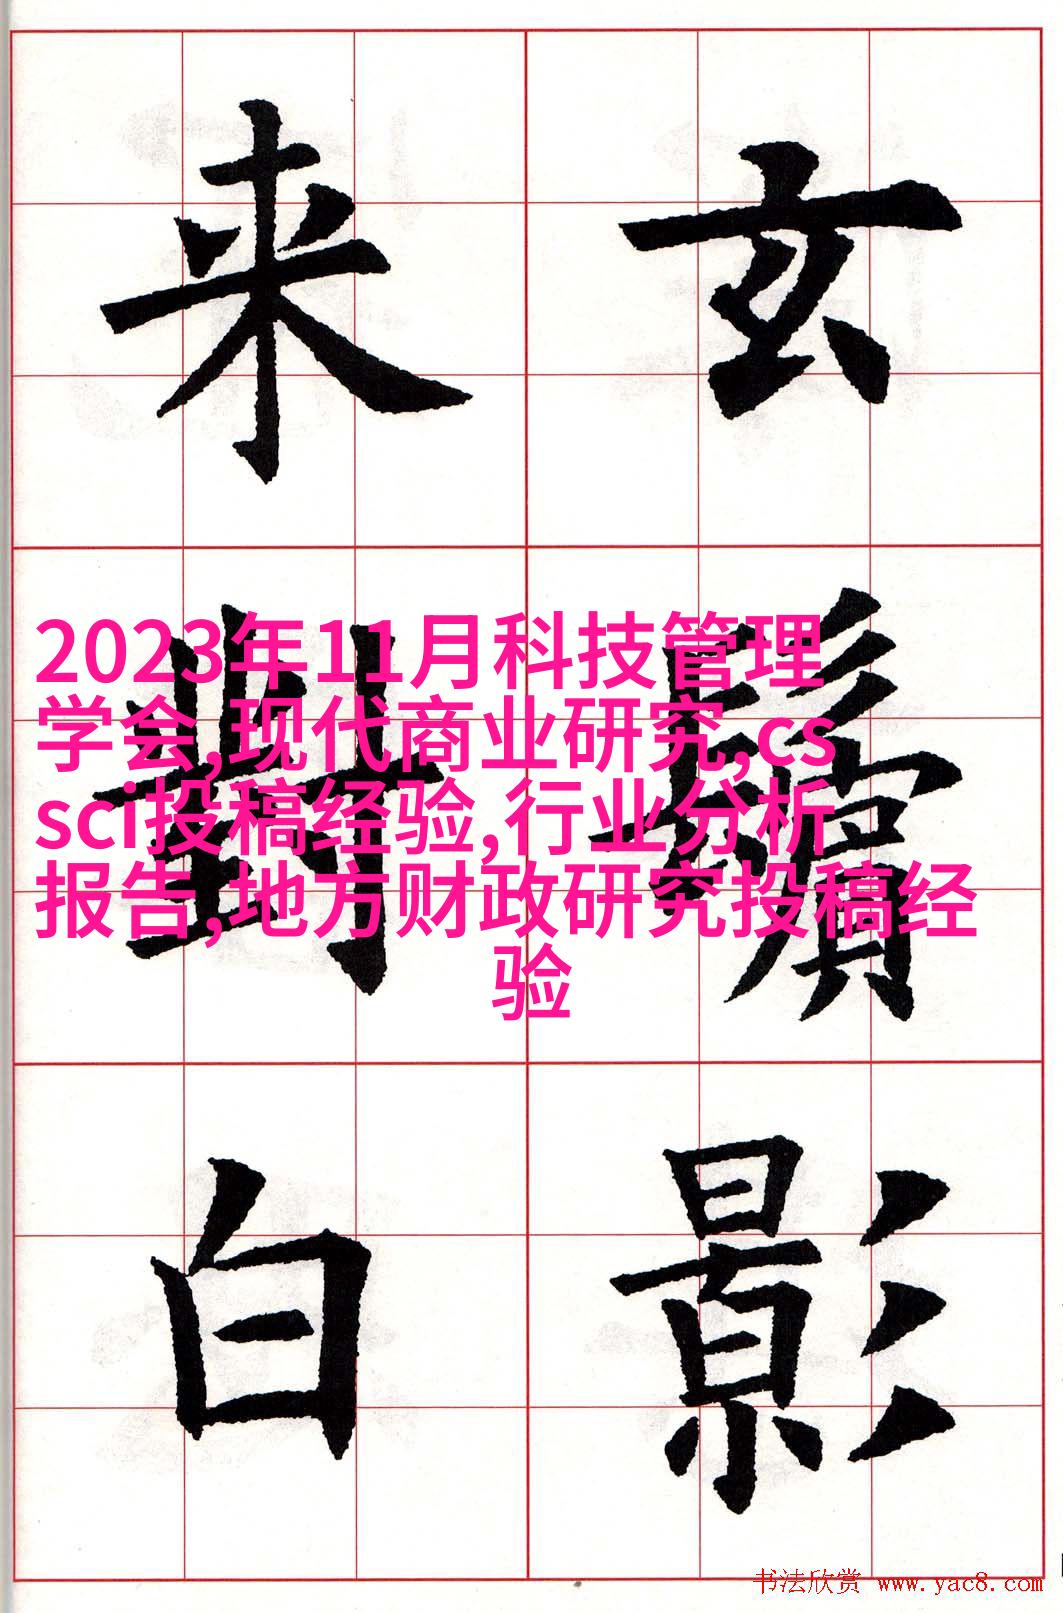 玄鬢影
来對白
2023年11月科技管理
学会,现代商业研究,cs
sci投稿经验,行业分析
报告,地方财政研究投稿经
验
书法欣赏 www.yac8.com